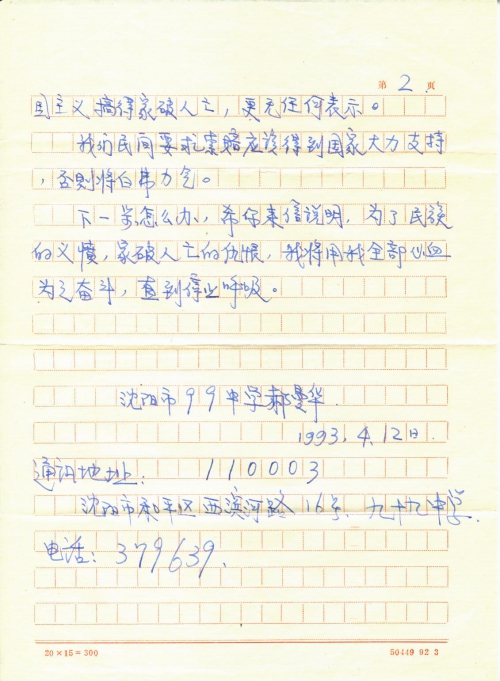 第 2 页
国主义搞得家破人亡，更无任何表示。
我们民间要求索赔应该得到国家大力支持
，否则将白费力气。
下一步怎么办，希你来信说明，为了民族
的义愤，家破人亡的仇恨，我将用我全部心血
为之奋斗，直到停止呼吸。
沈阳市99中学郝曼华.
1993.4.12日.
通讯地址： 110003
沈阳市和平区西滨河路16号. 九十九中学.
电话：379639.
20×15=300 50449 92 3